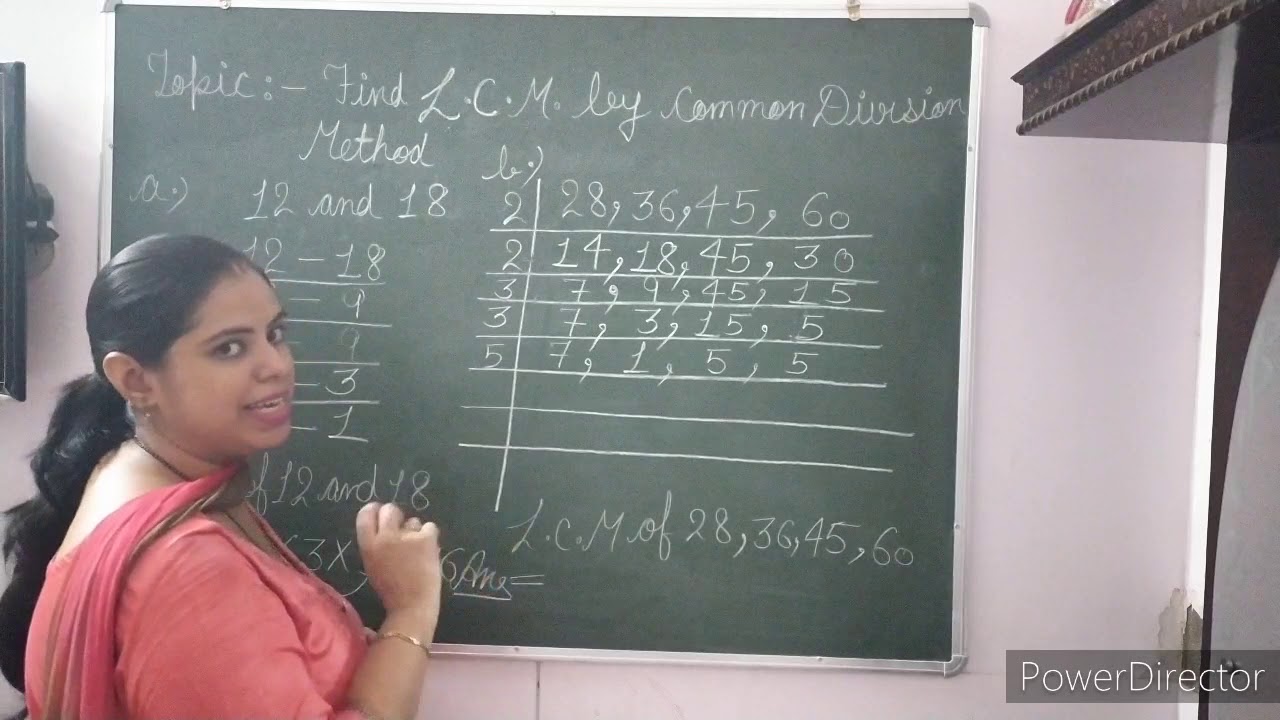 Topic:- Find L.C.M. by Common Division
Method
a.) 12 and 18
12 - 18
- 9
- 9
- 3
- 1
f 12 and 18
3x 6 Ans
b.)
2 28, 36, 45, 60
2 14, 18, 45, 30
3 7, 9, 45, 15
3 7, 3, 15, 5
5 7, 1, 5, 5
L.C.M. of 28, 36, 45, 60
=
PowerDirector